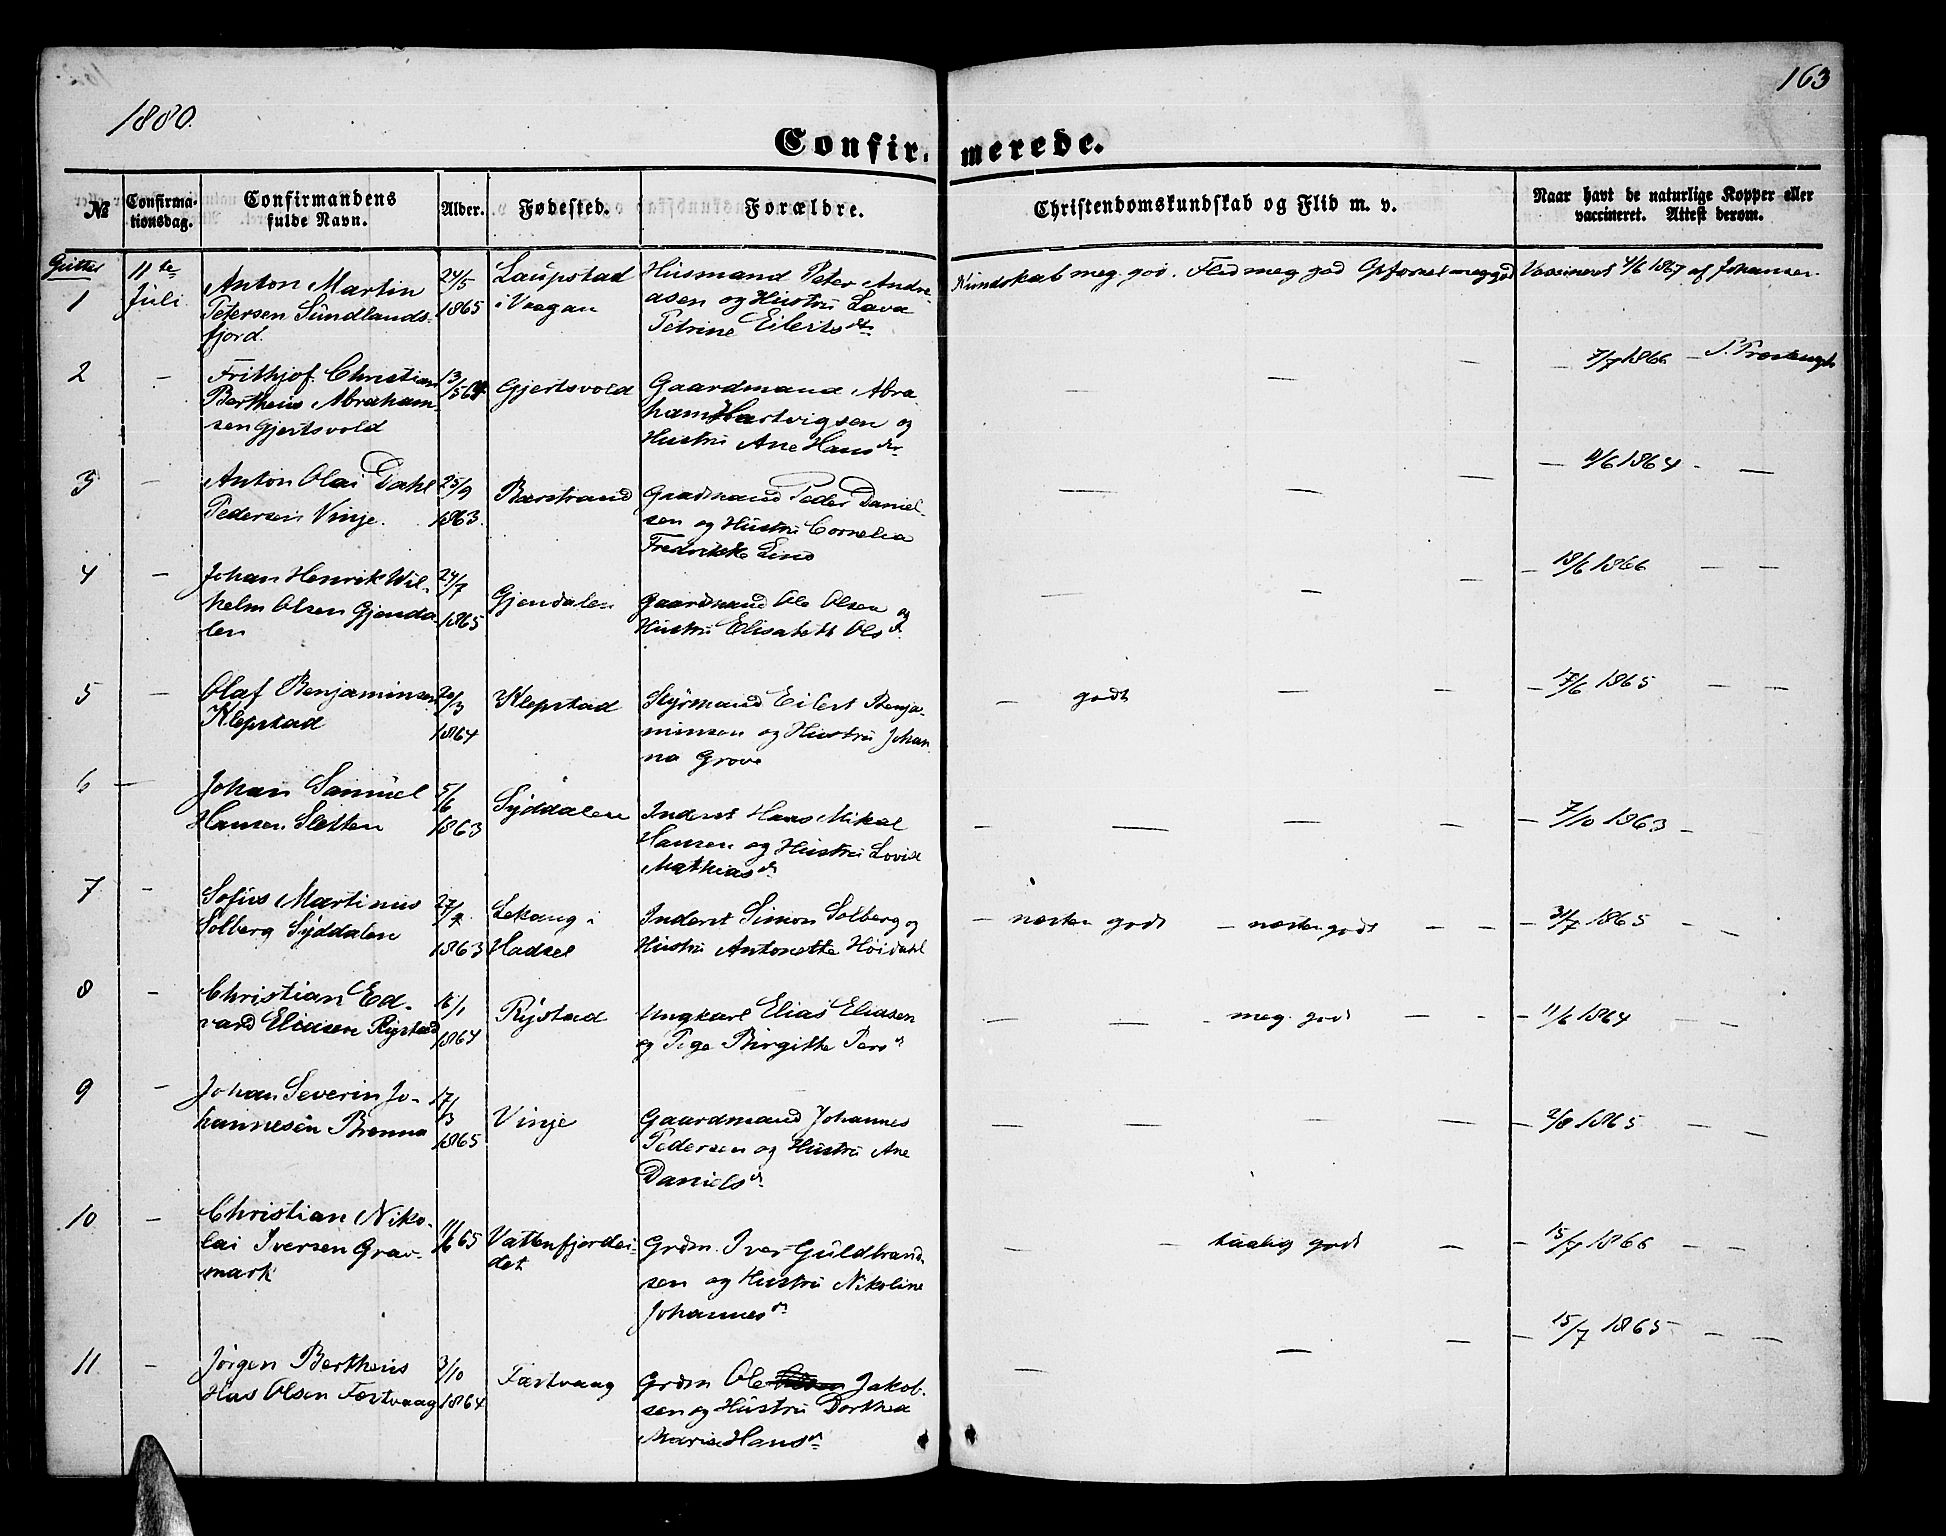 163
1880.
Confirmerede.
№
Confirmationsdag.
Confirmandens fulde Navn.
Alder.
Fødested.
Forældre.
Christendomskundskab og Flid m. v.
Naar havt de naturlige Kopper eller vaccineret. Attest derom.
Gutter
1
11te Juli
Anton Martin
Petersen Sundlands-
fjord.
24/5 1865
Laupstad
i Vaagan
Husmand Peter Andre-
asen og Hustru Lava
Petrine Eilertsdtr
Kundskab meg. god. Flid meg god Opførsel meg god
Vaccineret 4/6 1867 af Johansen
2
–
Frithjof Christian
Bertheus Abraham-
sen Gjertsvold
13/5 64
Gjertsvold
Gaardmand Abra-
ham Hartvigsen og
Hustru Ane Hansdtr
– – –
– 7/7 1866 –
3
–
Anton Olai Dahl
Pedersen Vinje.
25/9 1863.
Barstrand
Gaardmand Peder Daniel-
sen og Hustru Cornelia
Fredrikke Lind
– – –
– 11/6 1864 – –
4
–
Johan Henrik Wil-
helm Olsen Gjenda-
len
24/7 1865
Gjendalen
Gaardmand Ole Olsen og
Hustru Elisabeth Olsd.
– – –
– 18/6 1866 – –
5
–
Olaf Benjaminsen
Klepstad
20/3 1864
Klepstad
Styrmand Eilert Benja-
minsen og Hustru Johan-
na Grove
– godt – –
– 17/6 1865 – –
6
–
Johan Samuel
Hansen Sletten
5/6 1863
Syddalen
Inderst Hans Mikal
Hansen og Hustru Lovise
Mathiasd.
– – – –
– 7/10 1863 –
7
–
Sofus Martinus
Solberg Syddalen
27/2 1863
Lekang i
Hadsel
Inderst Simon Solberg og
Hustru Antonette Høidahl
– næsten godt – næsten godt – –
– 31/7 1865 – –
8
–
Christian Ed-
vard Eliasen Rystad
16/1 1864
Rystad
Ungkarl Elias Eliasen
og Pige Birgitte Persd.
– – – meg. god – –
– 11/6 1864 – –
9
–
Johan Severin Jo-
hannesen Brenna
17/3 1865
Vinje
Gaardmand Johannes
Pedersen og Hustru Ane
Danielsd.
– – – – –
2/8 1865 – –
10
–
Christian Niko-
lai Iversen Grav-
mark
11/6 65
Vattenfjordei-
det
Grdm. Iver Guldbrand-
sen og Hustru Nikoline
Johannesd.
– – taalig godt –
– 15/7 1866 – –
11
–
Jørgen Bertheus
Has Olsen Fæstvaag
3/10 1864
Fæstvaag
Grdm Ole Jakob-
sen og Hustru Dorthea
Marie Hansd.
– – –
– 15/7 1865 – –